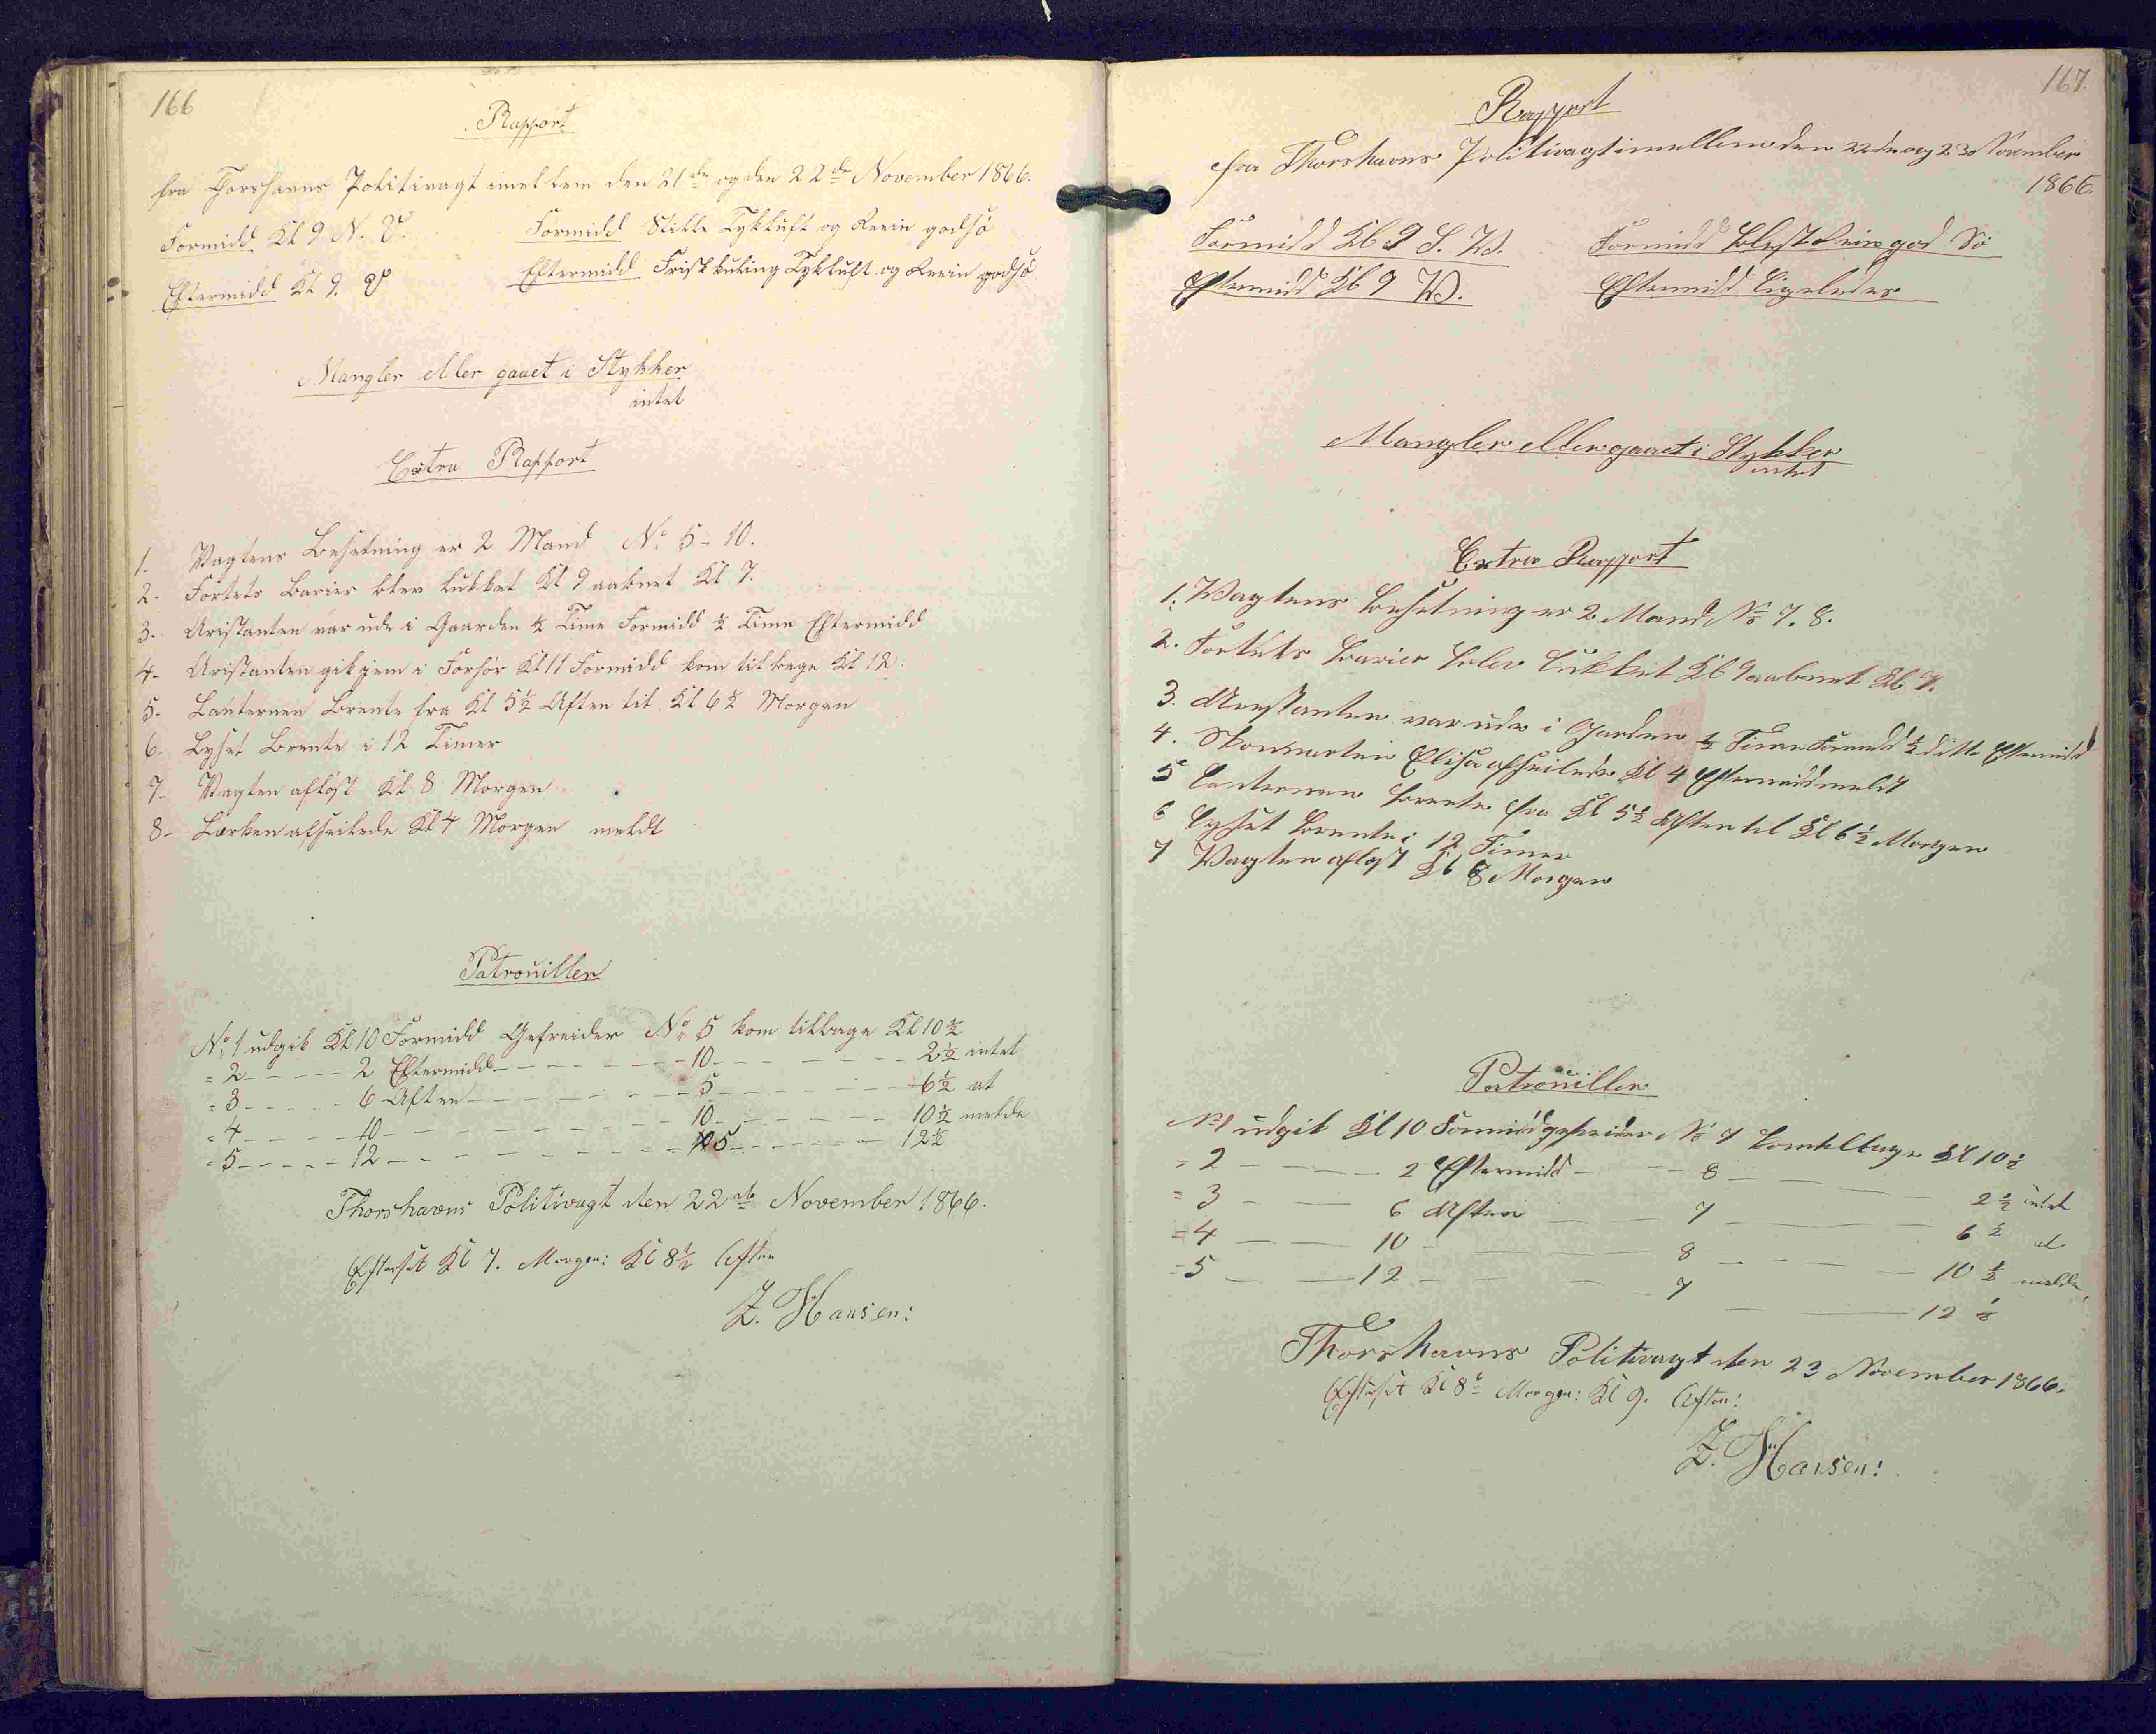 166
Rapport
fra Thorshavns Politivagt imellem den 21de og den 22de November 1866.
Formidd Kl 9 N. V. Formidd Stille Tykluft og Rein godsø
Eftermidd Kl 9. V Eftermidd Frisk kuling Tykluft og Rein godsø
Mangler eller gaaet i Stykker
intet
Extra Rapport
1- Vagtens Besetning er 2 Mand No 5-10.
2- Fortets Barier blev lukket Kl 9 aabnet Kl 7.
3- Aristanten var ude i Gaarden ½ Time Formidd ½ Time Eftermidd
4- Aristanten gik hjem i Forhør Kl 11 Formidd kom tilbage Kl 12.
5- Lanternen Brente fra Kl 5½ Aften til Kl 6½ Morgen
6- Lyset Brente i 12 Timer
7- Vagten afløst Kl 8 Morgen
8- Lerken afseilede Kl 4 Morgen meldt
Patrouiller
No 1 udgik Kl 10 Formidd Gefreider No 5 kom tilbage Kl 10½
= 2 - - - - - 2 Eftermidd - - - - - - 10 - - - - - - - 2½ intet
= 3 - - - - - 6 Aften - - - - - - - 5 - - - - - - - 6½ at
= 4 - - - - - 10 - - - - - - - - - 10 - - - - - - - 10½ melde
= 5 - - - - - 12 - - - - - - - - - 5 - - - - - - - 12½
Thorshavns Politivagt den 22de November 1866.
Efterset Kl 7. Morgen: Kl 8½ Aften
Z. Hansen:
167.
Rapport
fra Thorshavns Politivagt imellem den 22de og 23 November
1866.
Formidd Kl 9 S. W. Formidd Blest Rein god Sø
Eftermidd Kl 9 W. Eftermidd Ligeledes
Mangler eller gaaet i Stykker
intet
Extra Rapport
1. Wagtens Besetning er 2 Mand No 7. 8.
2. Fortets Barier blev lukket Kl 9 aabnet Kl 7.
3. Arestanten var ude i Garden ½ Time Formidd ½ ditto Eftermidd
4. Skonnerten Elisa afseilede Kl 4 Eftermidd meldt
5 Lanternen Brente fra Kl 5½ Aften til Kl 6½ Morgen
6 Lyset Brente i 12 Timer
7 Wagten afløst Kl 8 Morgen
Patrouiller
No 1 udgik Kl 10 Formidd gefreider No 7 kom tilbage Kl 10½
= 2 — — — 2 Eftermidd — — 8 — — — — 2½ intet
= 3 — — — 6 Aften — — 7 — — — — 6½ at
= 4 — — — 10 — — — — 8 — — — — 10½ melde
= 5 — — — 12 — — — — 7 — — — — 12½
Thorshavns Politivagt den 23 November 1866.
Efterset Kl 8½ Morgen: Kl 9. Aften:
Z. Hansen: